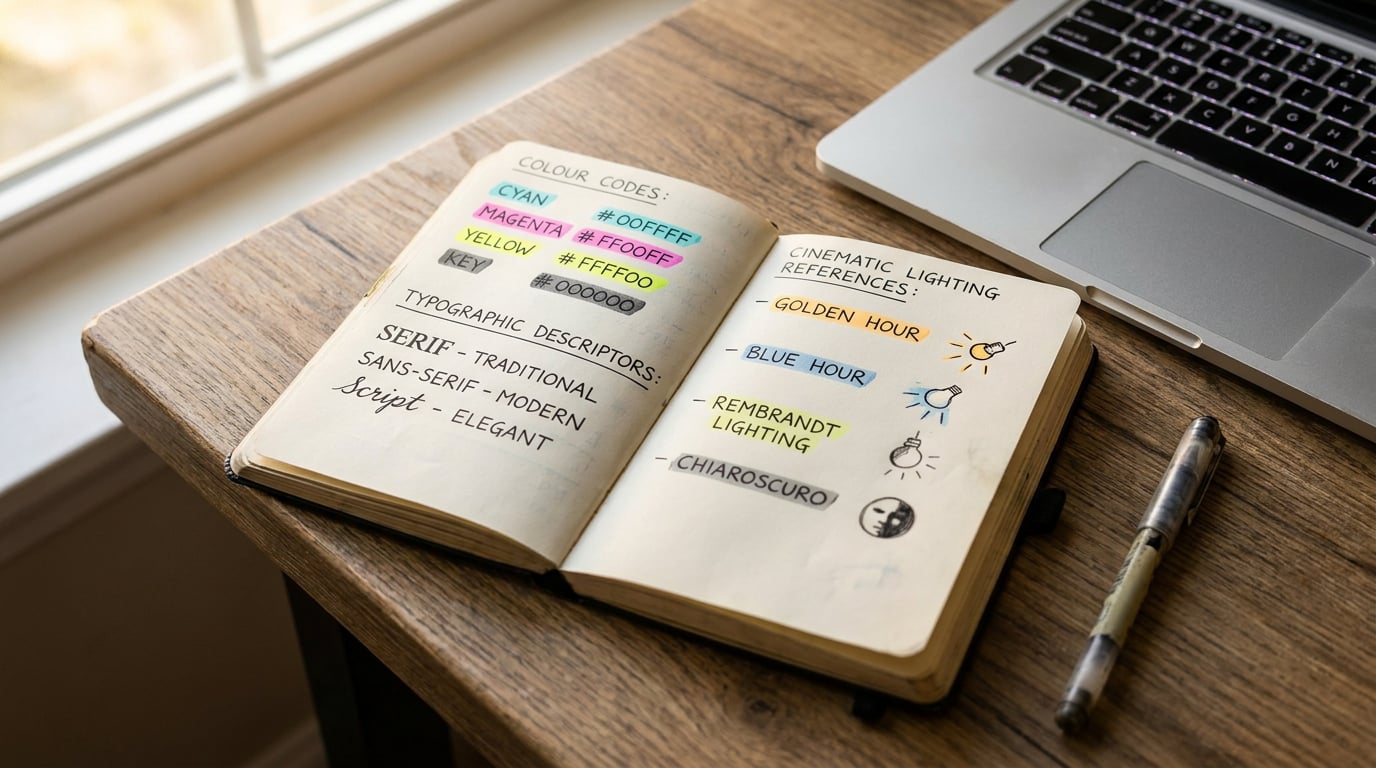 COLOUR CODES:
CYAN #00FFFF
MAGENTA #FF00FF
YELLOW #FFFF00
KEY #000000
TYPOGRAPHIC DESCRIPTORS:
SERIF - TRADITIONAL
SANS-SERIF - MODERN
Script - ELEGANT
CINEMATIC LIGHTING
REFERENCES:
- GOLDEN HOUR
- BLUE HOUR
- REMBRANDT
LIGHTING
- CHIAROSCURO